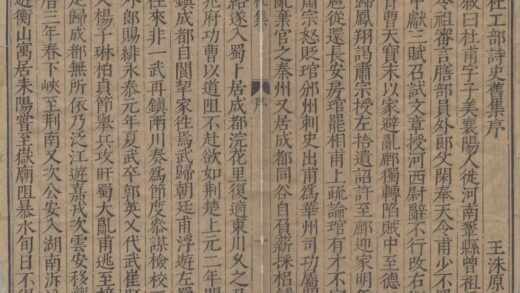 杜工部詩史舊集序
王洙原
敘曰杜甫字子美襄陽人徙河南鞏縣曾祖
令祖審言膳部員外郎父閑奉天令甫少不
中獻三賦召試文章授河西尉辭不行改右
曹天寶末以家避亂鄜獨轉陷賊中至德
歸鳳翔謁肅宗授左拾遺詔許至鄜迎家明年
扈從還長安房琯罷相甫上疏論琯有才不
肅宗怒貶琯邠州刺史出甫爲華州司功屬關
亂棄官之秦州又居成都同谷自負薪採梠
給遂入蜀卜居成都浣花里復適東川久之召
兆府功曹以道阻不赴欲如荆楚上元二年聞
鎮成都自閬挈家徃焉武歸朝廷甫浮遊左蜀
往來非一武再鎮兩川奏爲節度參謀檢校
水郎賜緋永泰元年夏武卒郭英乂代武崔旰
乂楊子琳柏貞節舉兵攻旰蜀大亂甫逃至梓
走歸成都無所依乃泛江遊嘉戎次雲安移
曆三年春下峽至荆南又次公安入湖南泝
遊衡山寓居耒陽嘗至嶽廟阻暴水旬日不得